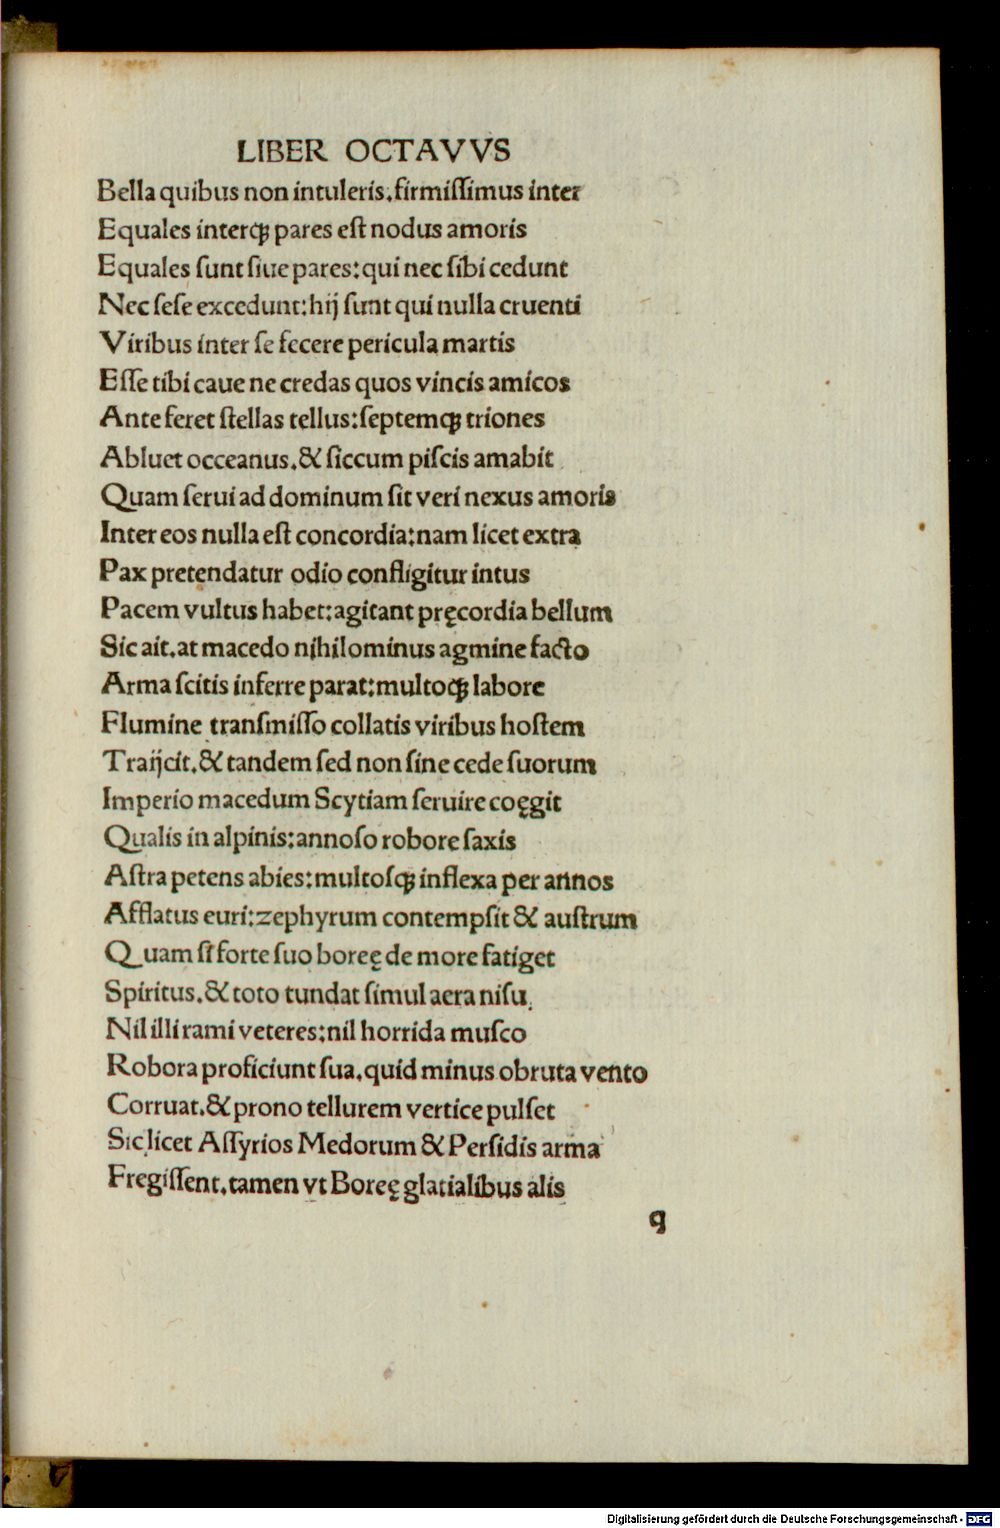 LIBER OCTAVVS
Bella quibus non intuleris.firmiſſimus inter
Equales interqꝫ pares eſt nodus amoris
Equales ſunt ſiue pares:qui nec ſibi cedunt
Nec ſeſe excedunt:hij ſunt qui nulla cruenti
Viribus inter ſe fecere pericula martis
Eſſe tibi caue ne credas quos vincis amicos
Ante feret ſtellas tellus:ſeptemqꝫ triones
Abluet occeanus.& ſiccum piſcis amabit
Quam ſerui ad dominum ſit veri nexus amoris
Inter eos nulla eſt concordia:nam licet extra
Pax pretendatur odio confligitur intus
Pacem vultus habet:agitant pręcordia bellum
Sic ait.at macedo nihilominus agmine facto
Arma ſcitis inferre parat:multoqꝫ labore
Flumine tranſmiſſo collatis viribus hoſtem
Traijcit.& tandem ſed non ſine cede ſuorum
Imperio macedum Scytiam ſeruire coęgit
Qualis in alpinis:annoſo robore ſaxis
Aſtra petens abies:multoſqꝫ inflexa per annos
Afflatus euri:zephyrum contempſit & auſtrum
Quam ſi forte ſuo boreę de more fatiget
Spiritus.& toto tundat ſimul aera niſu.
Nil illi rami veteres:nil horrida muſco
Robora proficiunt ſua.quid minus obruta vento
Corruat.& prono tellurem vertice pulſet
Sic licet Aſſyrios Medorum & Perſidis arma
Fregiſſent.tamen vt Boreę glatialibus alis
q
Digitalisierung gefördert durch die Deutsche Forschungsgemeinschaft - DFG